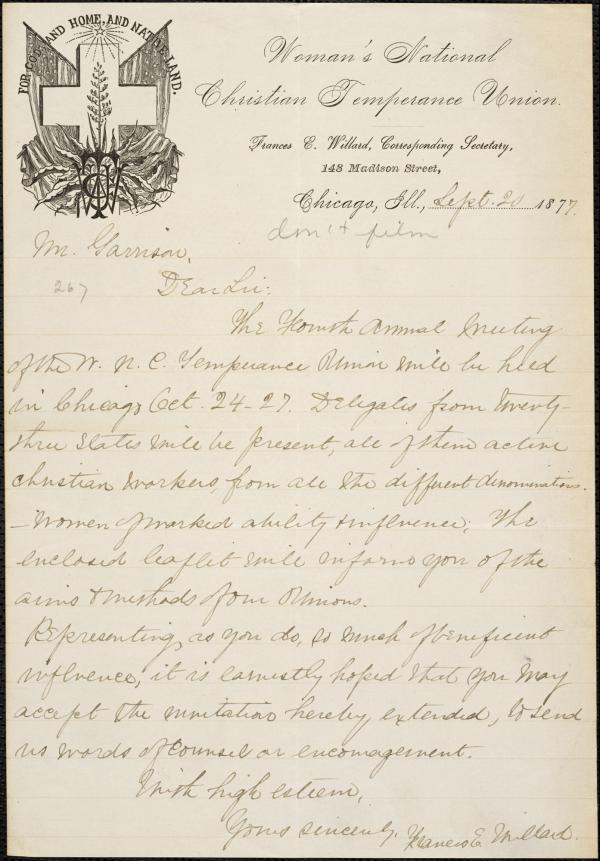 FOR GOD, AND HOME, AND NATIVE LAND.
W C T U
Woman's National
Christian Temperance Union.
Frances E. Willard, Corresponding Secretary,
148 Madison Street,
Chicago, Ill., Sept. 20 1877.
don't film
Mr. Garrison,
267
Dear Sir:
The Fourth Annual Meeting
of the W. N. C. Temperance Union will be held
in Chicago Oct. 24-27. Delegates from twenty-
three states will be present, all of them active
christian workers, from all the different denominations.
- Women of marked ability & influence; The
enclosed leaflet will inform you of the
aims & methods of our Unions.
Representing, as you do, so much of beneficent
influence, it is earnestly hoped that you may
accept the invitation hereby extended, to send
us words of counsel or encouragement.
With high esteem,
Yours sincerely, Frances E. Willard.